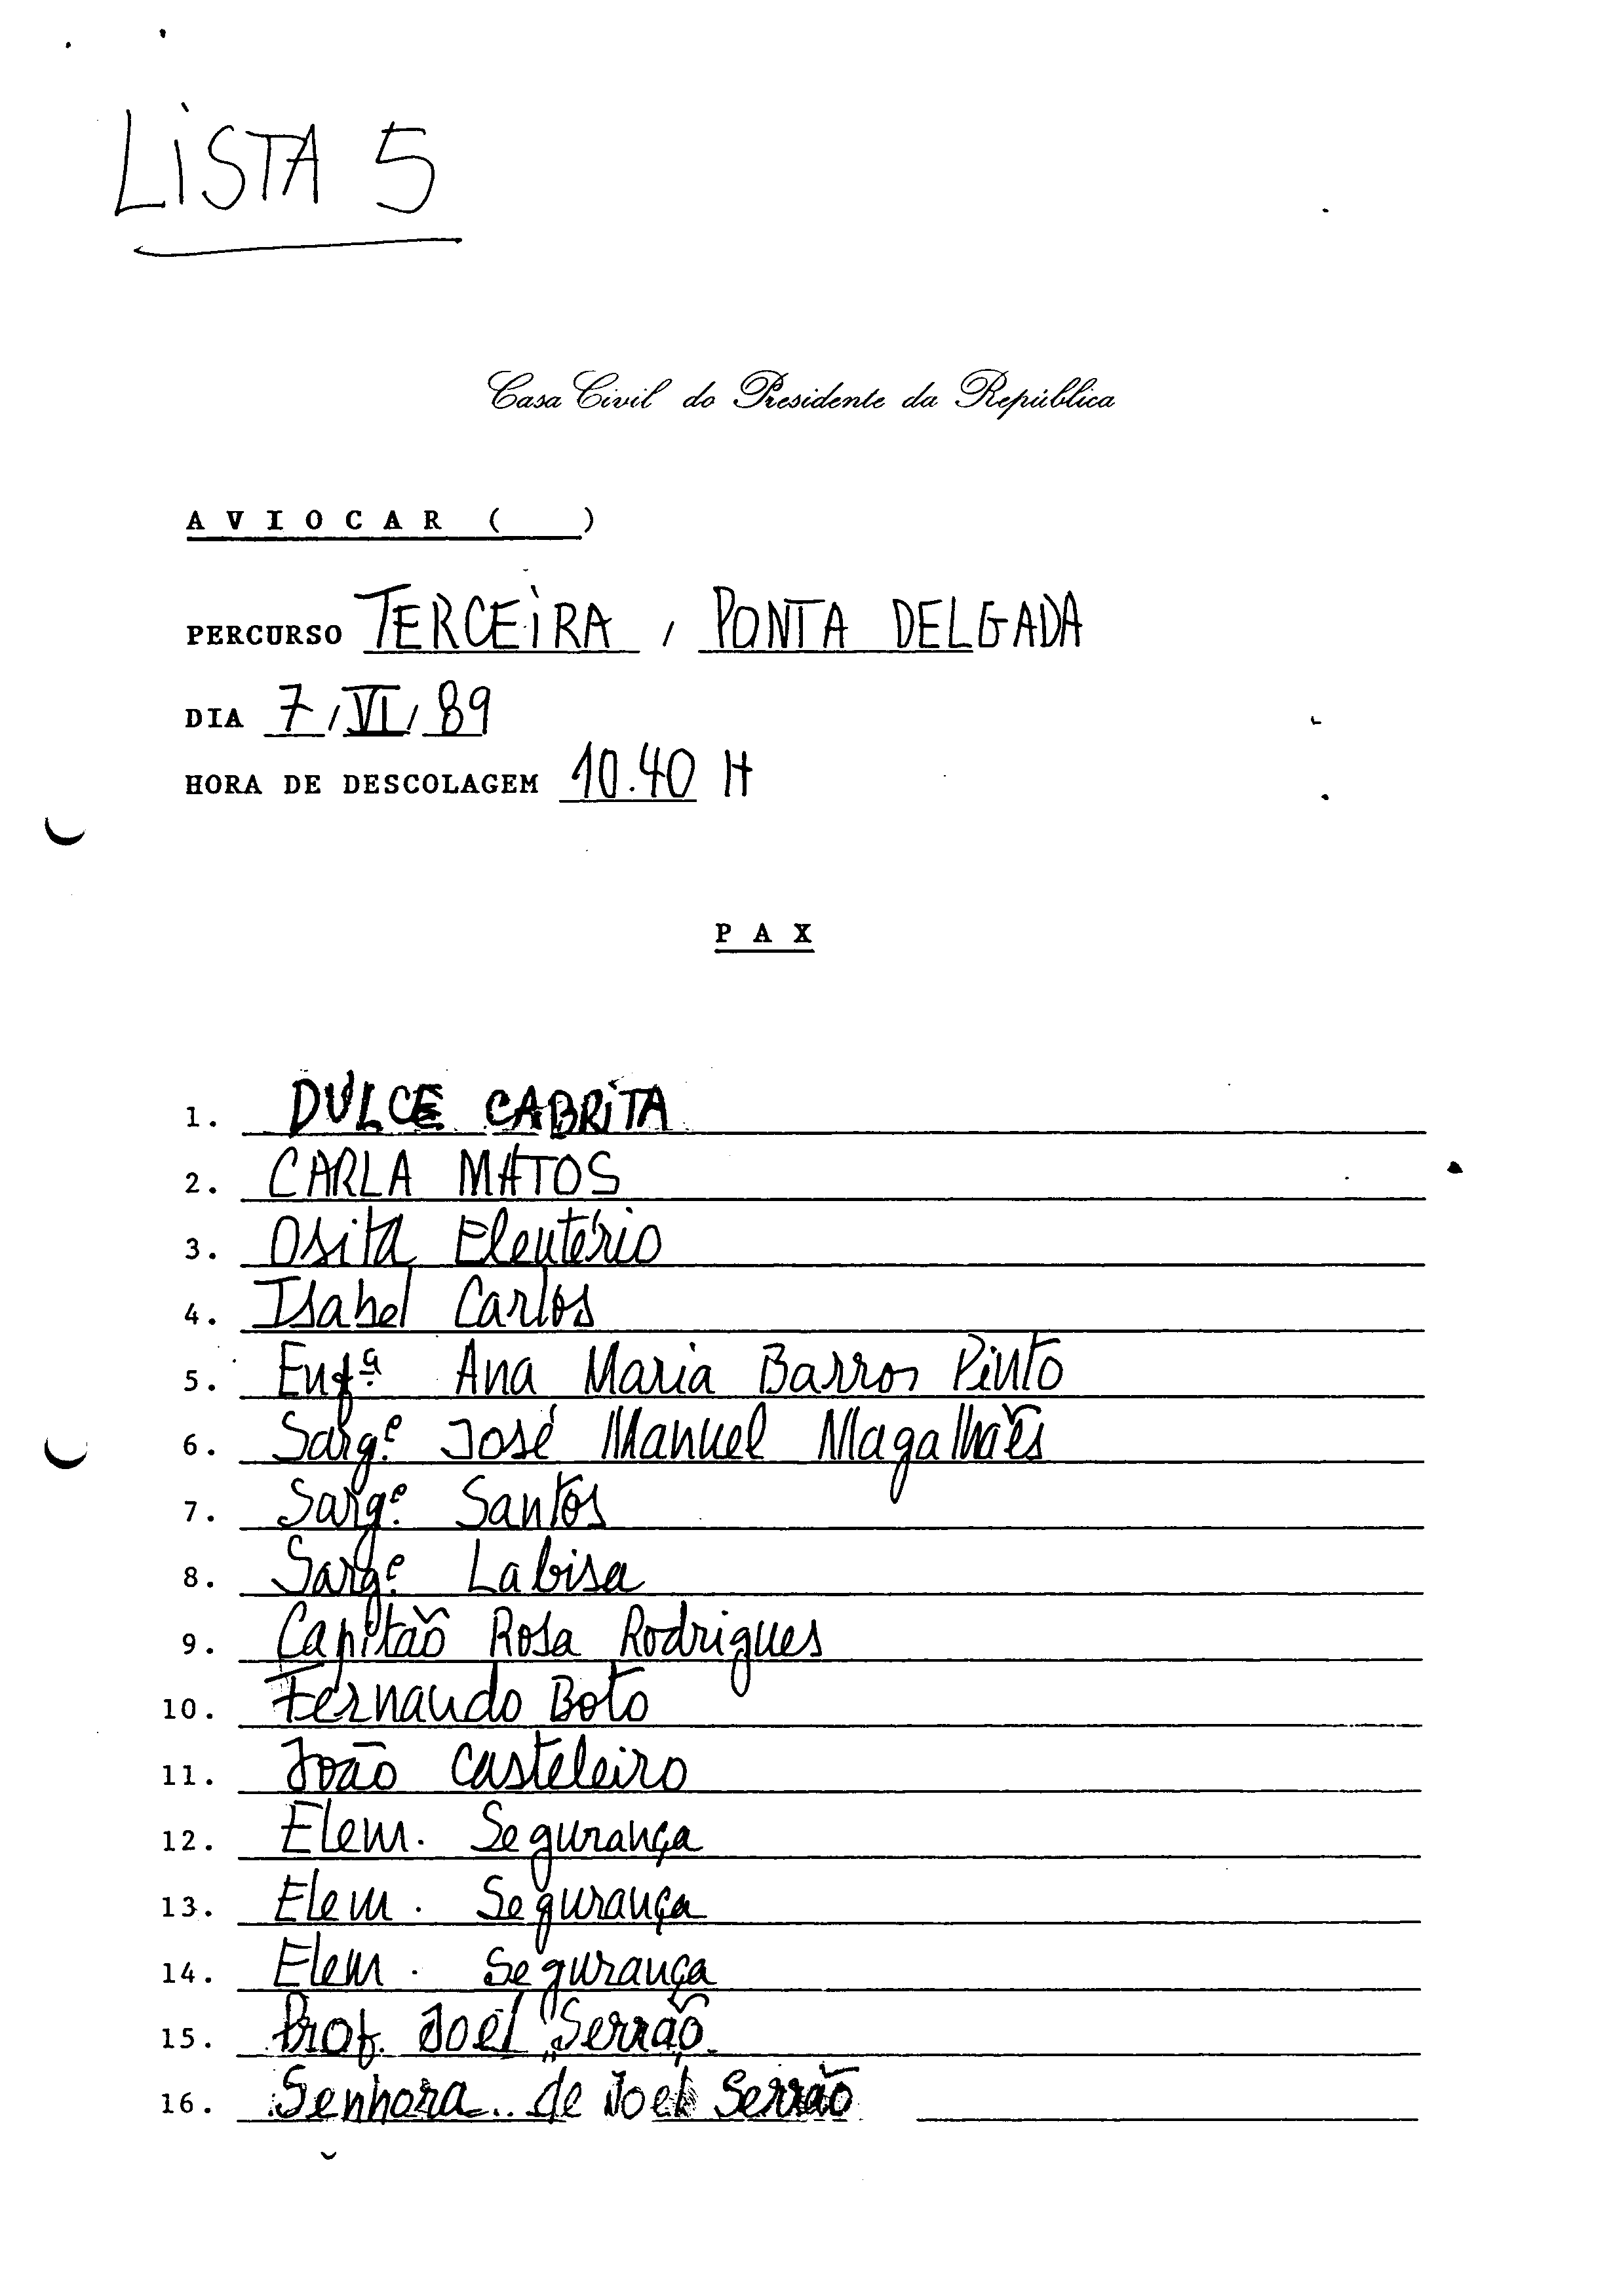 LiSTA 5
Casa Civil do Presidente da República
A V I O C A R ( )
PERCURSO TERCEiRA / PONTA DELGADA
DIA 7/VI/89
HORA DE DESCOLAGEM 10.40 H
P A X
1. DULCE CABRiTA
2. CARLA MATOS
3. Osita Eleutério
4. Isabel Carlos
5. Enfª Ana Maria Barros Pinto
6. Sargº José Manuel Magalhães
7. Sargº Santos
8. Sargº Labisa
9. Capitão Rosa Rodrigues
10. Fernando Boto
11. João Casteleiro
12. Elem. Segurança
13. Elem. Segurança
14. Elem. Segurança
15. Prof. Joel Serrão
16. Senhora de Joel Serrão